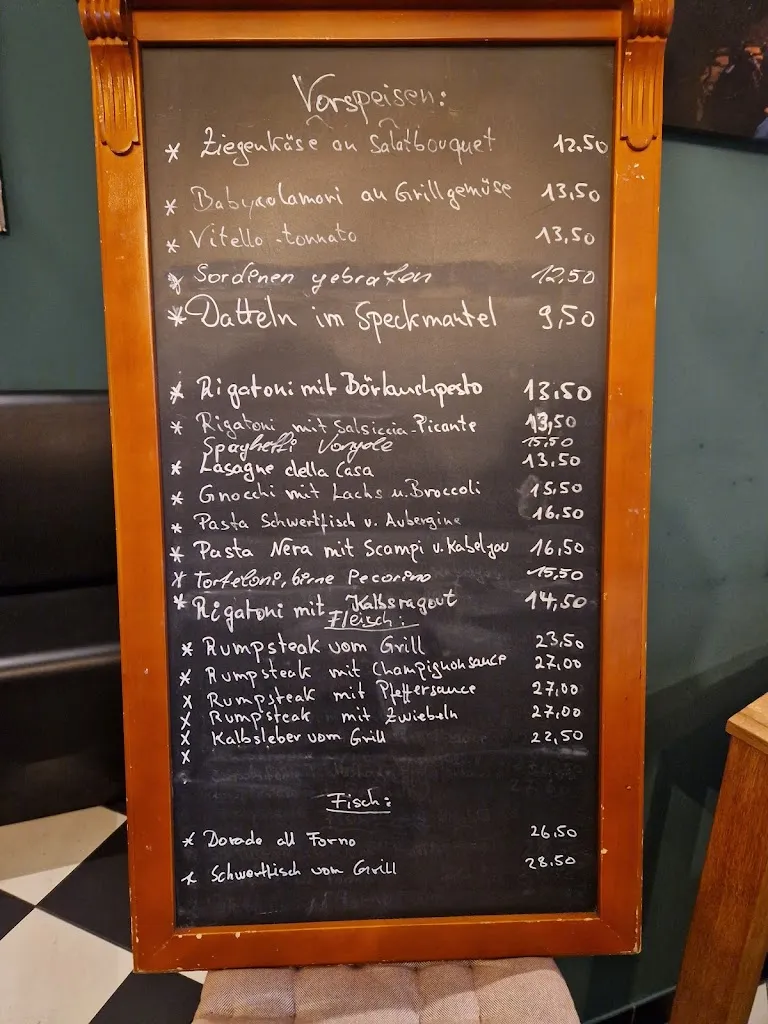 Vorspeisen:
* Ziegenkäse an Salatbouquet 12,50
* Babycalamari an Grillgemüse 13,50
* Vitello-tonnato 13,50
* Sardinen gebraten 12,50
* Datteln im Speckmantel 9,50
* Rigatoni mit Bärlauchpesto 13,50
* Rigatoni mit Salsiccia-Picante 13,50
Spaghetti Vongole 15,50
* Lasagne della Casa 13,50
* Gnocchi mit Lachs u. Broccoli 15,50
* Pasta Schwertfisch u. Aubergine 16,50
* Pasta Nera mit Scampi u. Kabeljau 16,50
* Torteloni, birne Pecorino 15,50
* Rigatoni mit Kalbsragout 14,50
Fleisch:
* Rumpsteak vom Grill 23,50
* Rumpsteak mit Champignonsauce 27,00
x Rumpsteak mit Pfeffersauce 27,00
x Rumpsteak mit Zwiebeln 27,00
x Kalbsleber vom Grill 22,50
x
Fisch:
* Dorade all Forno 26,50
* Schwertfisch vom Grill 28,50